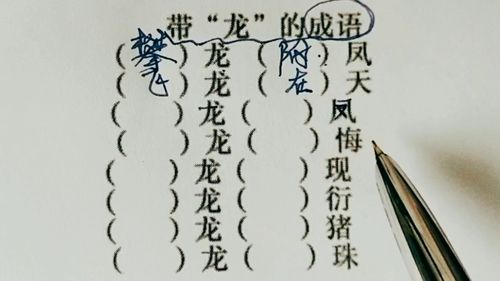 带“龙”的成语
(攀)龙(附)凤
(飞)龙(在)天
( )龙( )凤
( )龙( )悔
( )龙( )现
( )龙( )衍
( )龙( )猪
( )龙( )珠